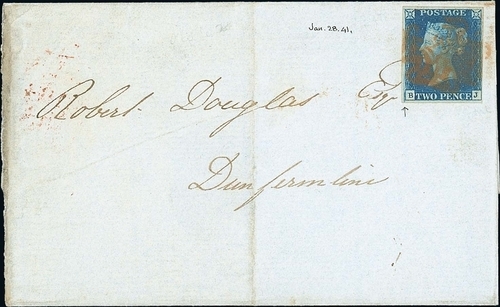 Jan. 28. 41.
POSTAGE
Robert Douglas Esqr
B TWO PENCE J
Dunfermline